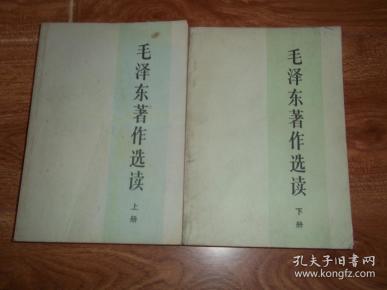 毛泽东著作选读
上册
毛泽东著作选读
下册
孔夫子旧书网
www.kongfz.com